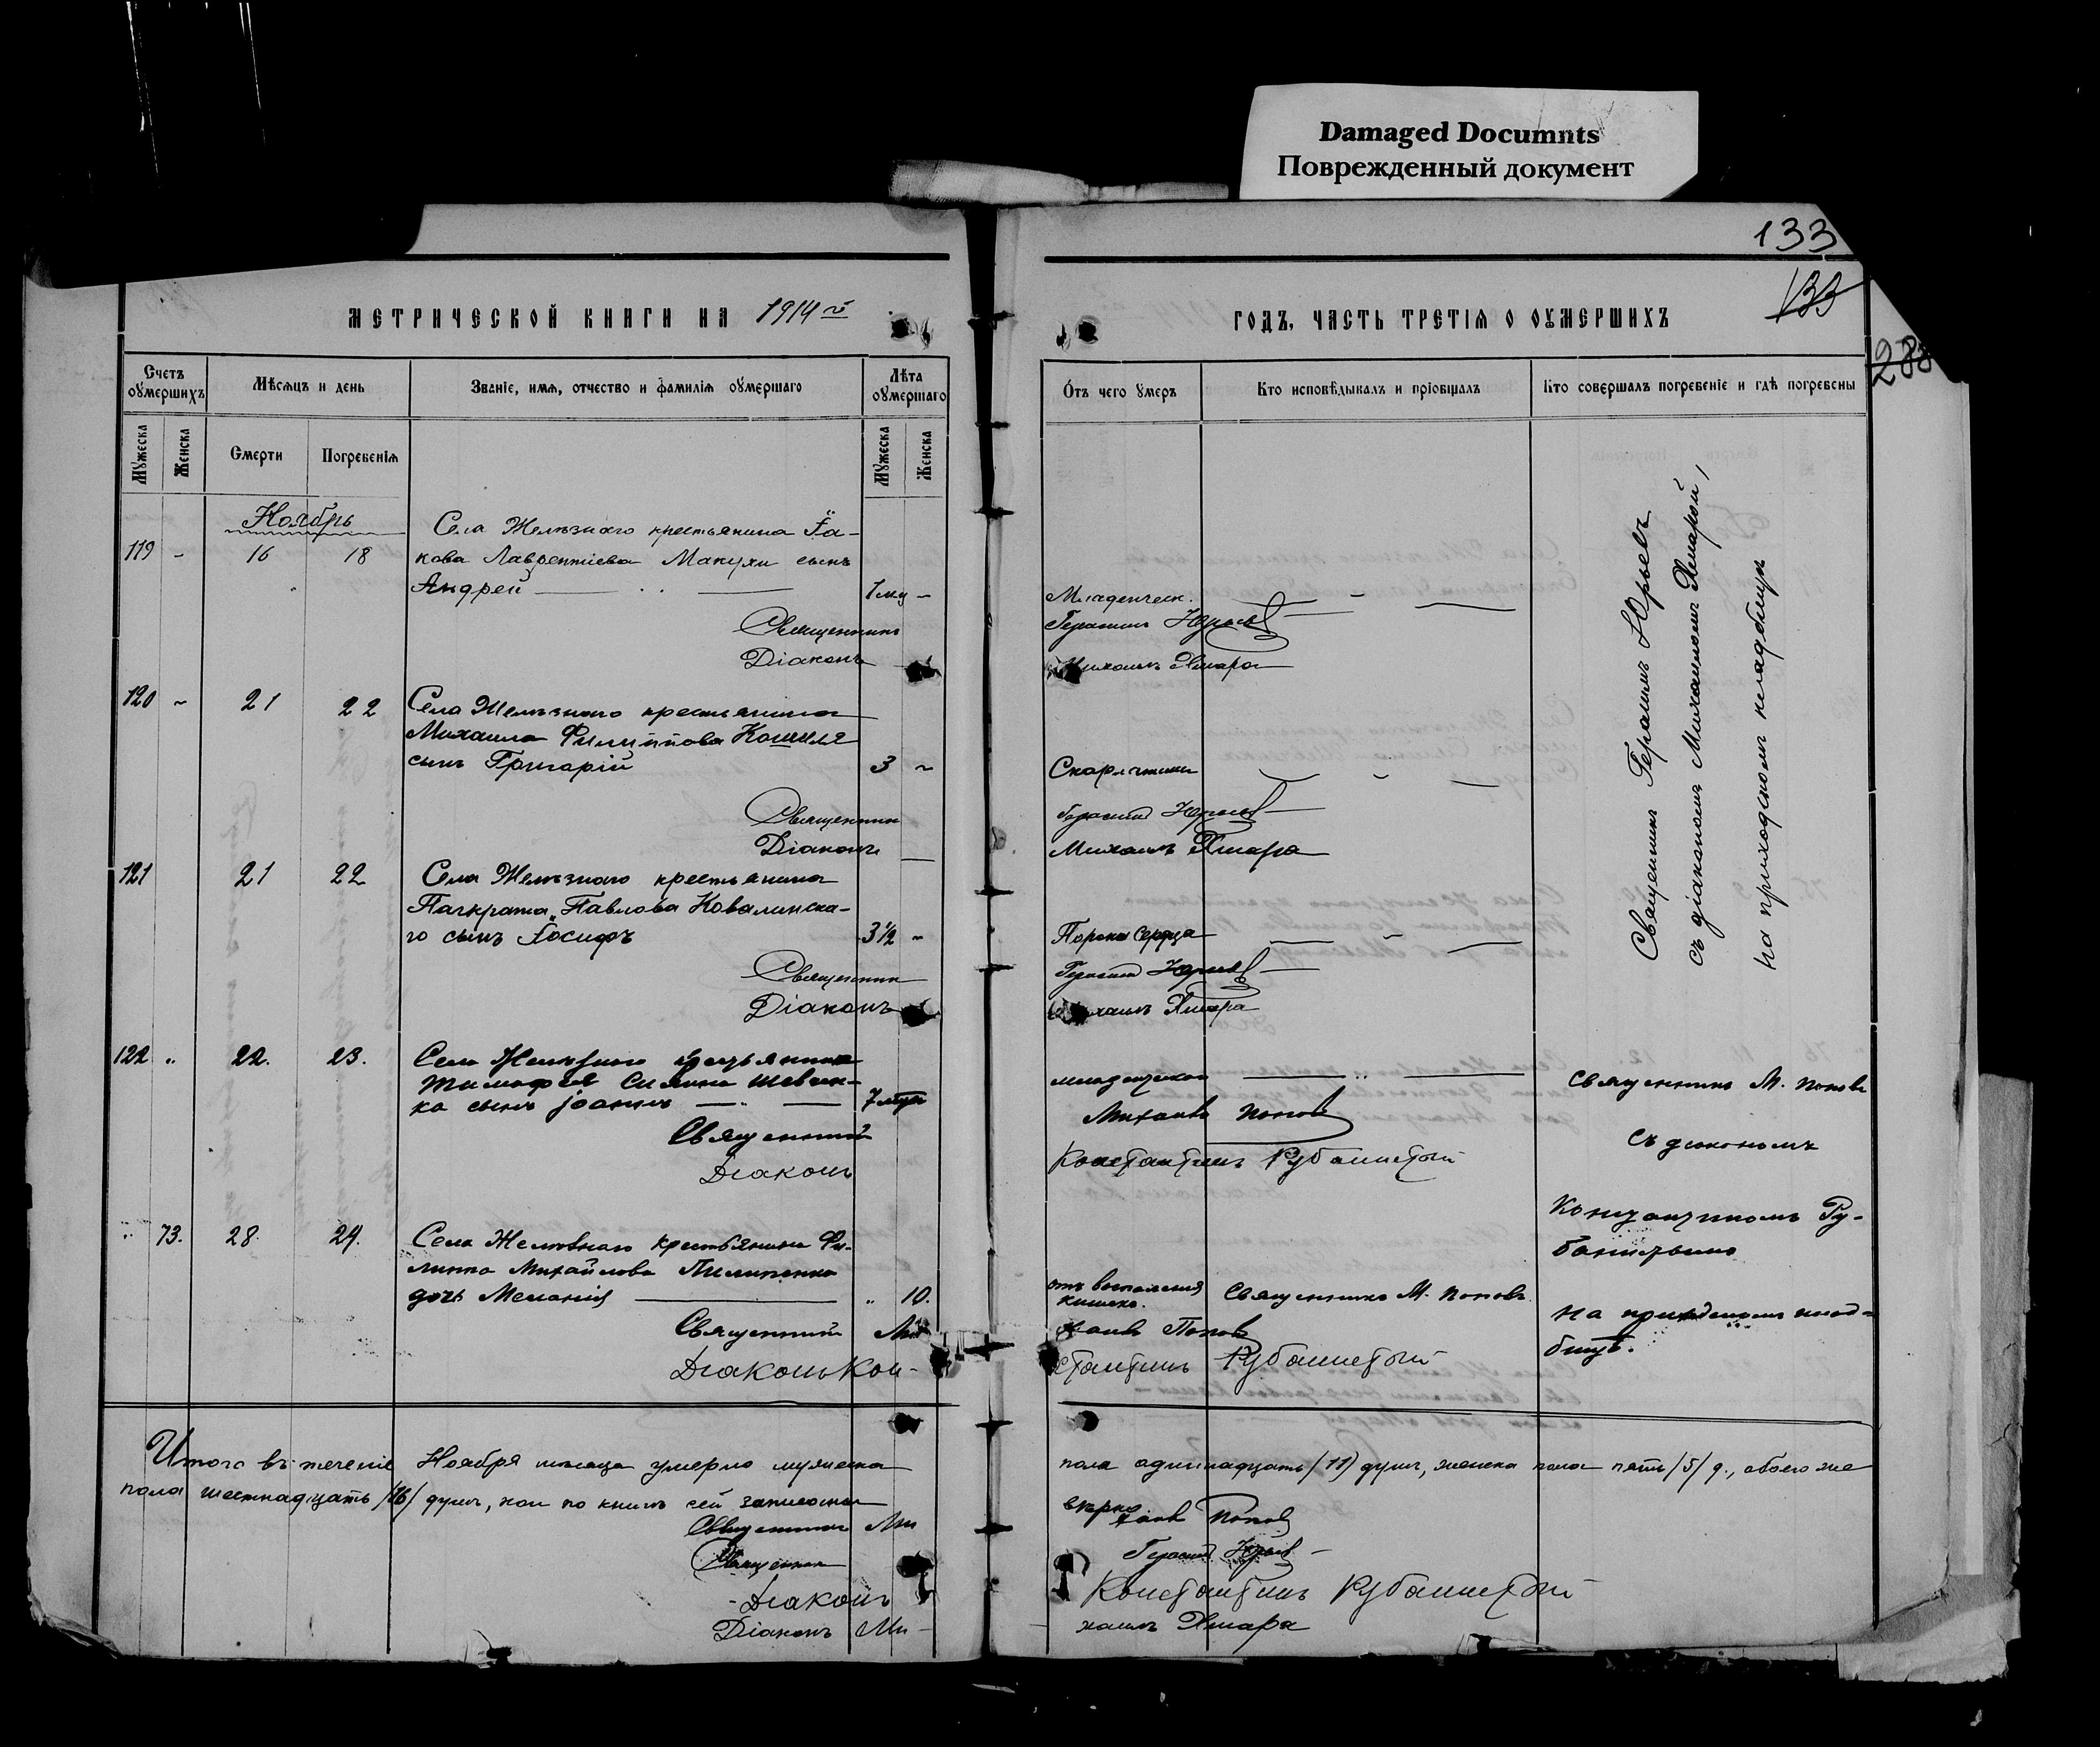 Damaged Documnts
Поврежденный документ
133
133
288
МЕТРИЧЕСКОЙ КНИГИ НА 1914й
ГОДЪ, ЧАСТЬ ТРЕТІЯ О ОУМЕРШИХЪ
Счетъ оумершихъ
Мѣсяцъ и день
Званіе, имя, отчество и фамилія оумершаго
Лѣта оумершаго
Отъ чего умеръ
Кто исповѣдывалъ и пріобщалъ
Кто совершалъ погребеніе и гдѣ погребены
Мужеска
Женска
Смерти
Погребенія
Мужеска
Женска
Ноябрь
Села Желѣзнаго крестьянина Іа-
119 - 16 18 кова Лаврентіева Макухи сынъ
Андрей 1 мц - Младенческ.
Священникъ Герасимъ Юрьевъ
Діаконъ Михаилъ Хмара
120 ~ 21 22 Села Желѣзнаго крестьянина
Михаила Филиппова Кошиля
сынъ Григорій 3 ~ Скарлатины
Священникъ Герасимъ Юрьевъ
Діаконъ Михаилъ Хмара
121 21 22 Села Желѣзнаго крестьянина
Панкрата Павлова Ковалинска-
го сынъ Іосифъ 3½ " Порока сердца
Священникъ Герасимъ Юрьевъ
Діаконъ Михаилъ Хмара
Священникъ Герасимъ Юрьевъ
съ діакономъ Михаиломъ Хмарой,
на приходскомъ кладбищѣ
122 " 22. 23. Села Желѣзнаго крестьянина
Тимофея Силина Шевчен-
ка сынъ Іоаннъ 7 мцъ младенческой
Священникъ Михаилъ Поповъ
Діаконъ Константинъ Рубанистый
Священникъ М. Поповъ
съ діакономъ
Константиномъ Ру-
банистымъ
на приходскомъ клад-
бищѣ.
" 73. 28. 29. Села Желѣзнаго крестьянина Фи-
липпа Михайлова Пилипенка
дочь Меланія " 10. отъ воспаленія
кишекъ. Священникъ М. Поповъ
Священникъ Михаилъ Поповъ
Діаконъ Константинъ Рубанистый
Итого въ теченіе Ноября мѣсяца умерло мужеска пола одиннадцать /11/ душъ, женска пола пять /5/ д., обоего же
пола шестнадцать /16/ душъ, кои по книгѣ сей записаны вѣрно
Священникъ Михаилъ Поповъ
Священникъ Герасимъ Юрьевъ
Діаконъ Константинъ Рубанистый
Діаконъ Михаилъ Хмара